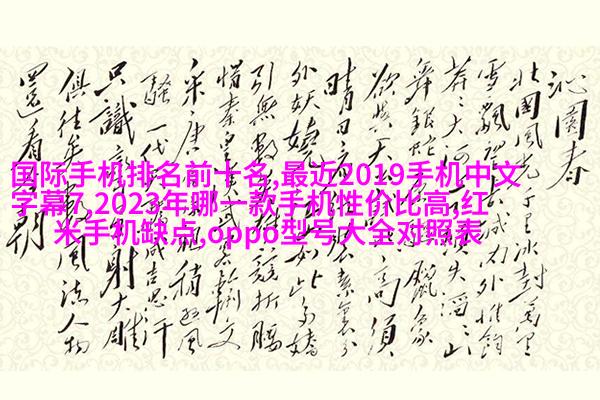 国际手机排名前十名,最近2019手机中文
字幕7,2023年哪一款手机性价比高,红
米手机缺点,oppo型号大全对照表
沁園春
北國風光千里冰封萬里
雪飄城內外惟餘
莽莽大河失滔滔山
舞銀蛇蠟象
欲與天高須
晴日素裹分
外妖嬈如此多嬌
引無數競折腰
惜秦皇輸文
采唐宗稍遜風
騷一代成吉思汗
只識射大雕
俱往矣風流人物
還看朝